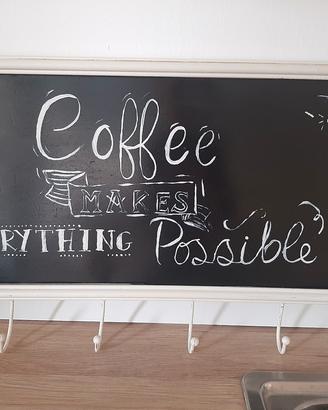 Coffee
MAKES
RYTHING Possible